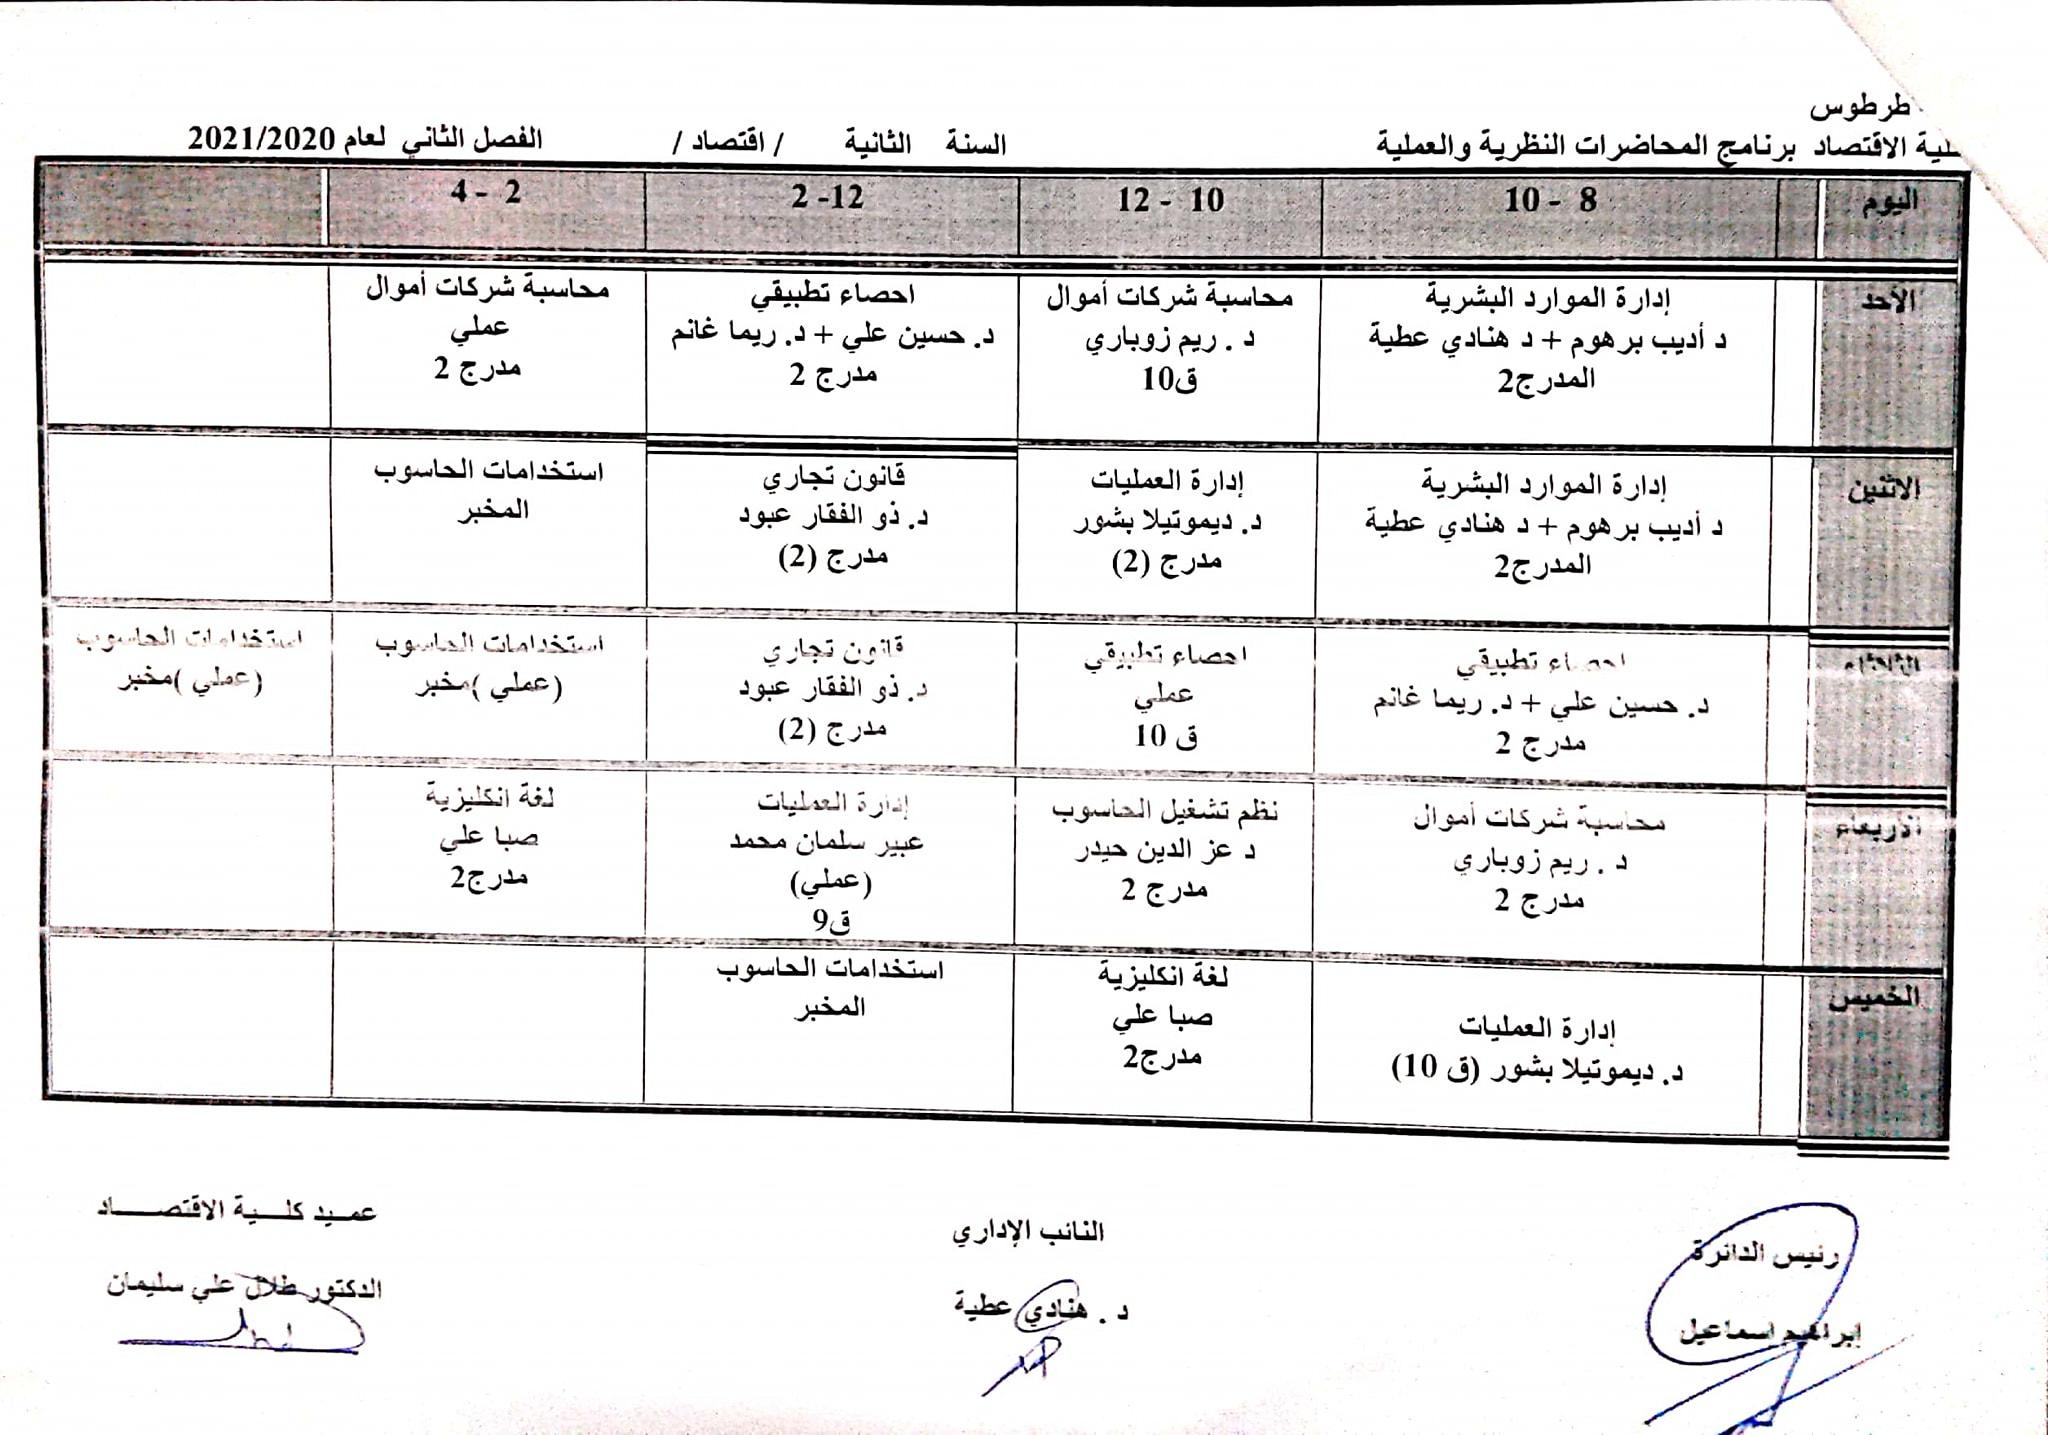 طرطوس
كلية الاقتصاد برنامج المحاضرات النظرية والعملية السنة الثانية / اقتصاد / الفصل الثاني لعام 2021/2020
اليوم 8 - 10 10 - 12 12- 2 2 - 4
الأحد
إدارة الموارد البشرية
د أديب برهوم + د هنادي عطية
المدرج2
محاسبة شركات أموال
د . ريم زوباري
ق10
احصاء تطبيقي
د. حسين علي + د. ريما غانم
مدرج 2
محاسبة شركات أموال
عملي
مدرج 2
الاثنين
إدارة الموارد البشرية
د أديب برهوم + د هنادي عطية
المدرج2
إدارة العمليات
د. ديموتيلا بشور
مدرج (2)
قانون تجاري
د. ذو الفقار عبود
مدرج (2)
استخدامات الحاسوب
المخبر
الثلاثاء
احصاء تطبيقي
د. حسين علي + د. ريما غانم
مدرج 2
احصاء تطبيقي
عملي
ق 10
قانون تجاري
د. ذو الفقار عبود
مدرج (2)
استخدامات الحاسوب
(عملي )مخبر
استخدامات الحاسوب
(عملي )مخبر
الاربعاء
محاسبة شركات أموال
د . ريم زوباري
مدرج 2
نظم تشغيل الحاسوب
د عز الدين حيدر
مدرج 2
إدارة العمليات
عبير سلمان محمد
(عملي)
ق9
لغة انكليزية
صبا علي
مدرج2
الخميس
إدارة العمليات
د. ديموتيلا بشور (ق 10)
لغة انكليزية
صبا علي
مدرج2
استخدامات الحاسوب
المخبر
رئيس الدائرة
إبراهيم اسماعيل
النائب الإداري
د . هنادي عطية
عميد كلية الاقتصاد
الدكتور طلال علي سليمان